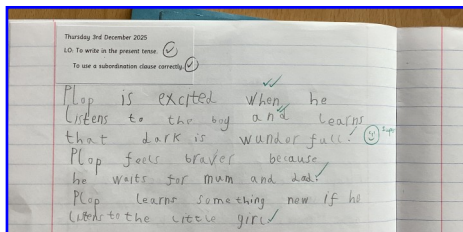 Thursday 3rd December 2025
LO. To write in the present tense.
To use a subordination clause correctly.
Plop is excited when he
listens to the boy and learns
that dark is wunderfull.
Plop feels braver because
he waits for mum and dad.
Plop learns something new if he
listens to the little girl